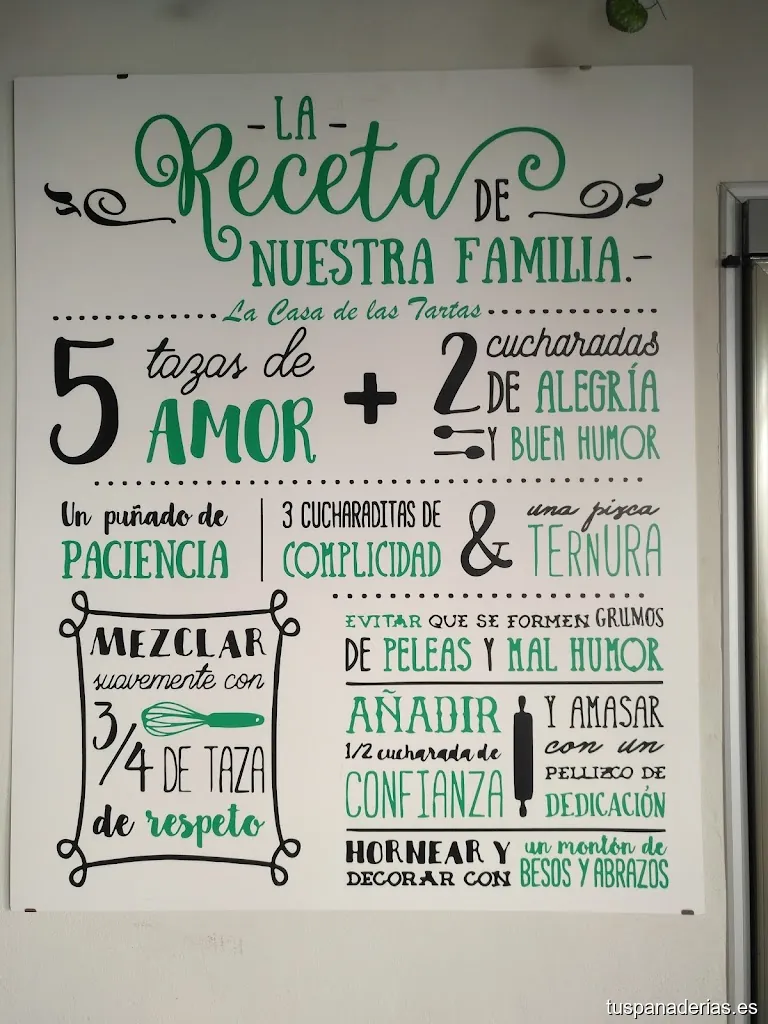 -LA-
Receta DE
NUESTRA FAMILIA.-
La Casa de las Tartas
5 tazas de
AMOR
+
2 cucharadas
DE ALEGRÍA
Y BUEN HUMOR
Un puñado de
PACIENCIA
3 CUCHARADITAS DE
COMPLICIDAD
&
una pizca
TERNURA
MEZCLAR
suavemente con
3/4 DE TAZA
de respeto
EVITAR QUE SE FORMEN GRUMOS
DE PELEAS Y MAL HUMOR
AÑADIR
1/2 cucharada de
CONFIANZA
Y AMASAR
con un
PELLIZCO DE
DEDICACIÓN
HORNEAR Y
DECORAR CON
un montón de
BESOS Y ABRAZOS
tuspanaderias.es